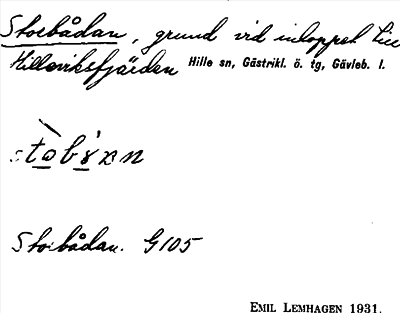 Storbådan, grund vid inloppet till
Hilleviksfjärden Hille sn, Gästrikl. ö. tg, Gävleb. l.
Storbådan. G105
EMIL LEMHAGEN 1931.